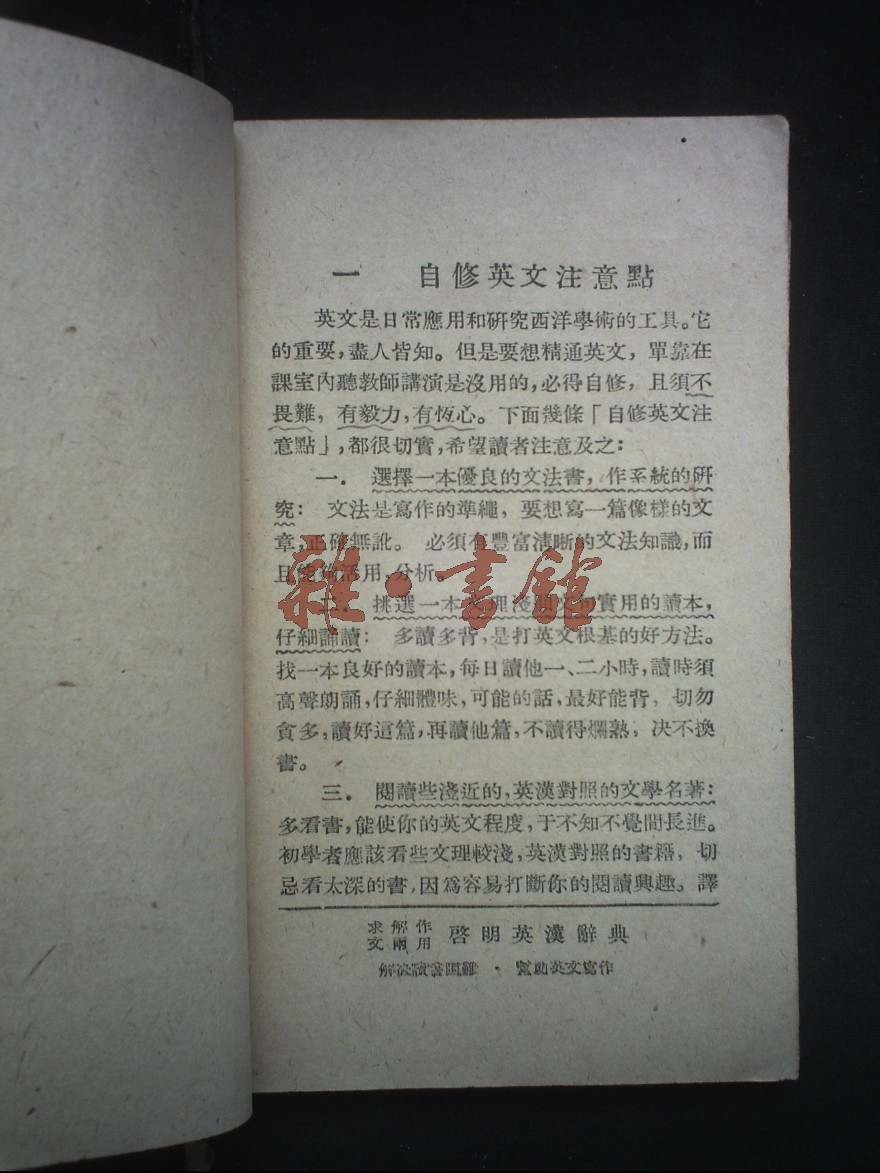 一　自修英文注意點
英文是日常應用和研究西洋學術的工具。它
的重要，盡人皆知。但是要想精通英文，單靠在
課室內聽教師講演是沒用的，必得自修，且須不
畏難，有毅力，有恆心。下面幾條「自修英文注
意點」，都很切實，希望讀者注意及之：
一．選擇一本優良的文法書，作系統的研
究：文法是寫作的準繩，要想寫一篇像樣的文
章，正確無訛。必須有豐富清晰的文法知識，而
且能夠活用，分析。
二．挑選一本文理淺顯文句實用的讀本，
仔細誦讀：多讀多背，是打英文根基的好方法。
找一本良好的讀本，每日讀他一、二小時，讀時須
高聲朗誦，仔細體味，可能的話，最好能背，切勿
貪多，讀好這篇，再讀他篇，不讀得爛熟，決不換
書。
三．閱讀些淺近的，英漢對照的文學名著：
多看書，能使你的英文程度，于不知不覺間長進。
初學者應該看些文理較淺，英漢對照的書籍，切
忌看太深的書，因爲容易打斷你的閱讀興趣。譯
求解作文兩用 啓明英漢辭典
解決讀書困難・幫助英文寫作
雜・書館